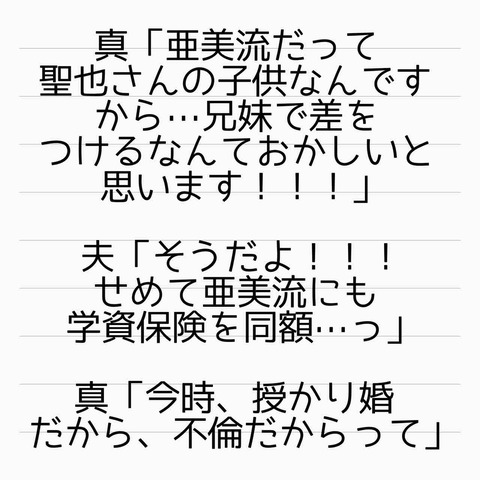 真「亜美流だって
聖也さんの子供なんです
から…兄妹で差を
つけるなんておかしいと
思います！！！」
夫「そうだよ！！！
せめて亜美流にも
学資保険を同額…っ」
真「今時、授かり婚
だから、不倫だからって」